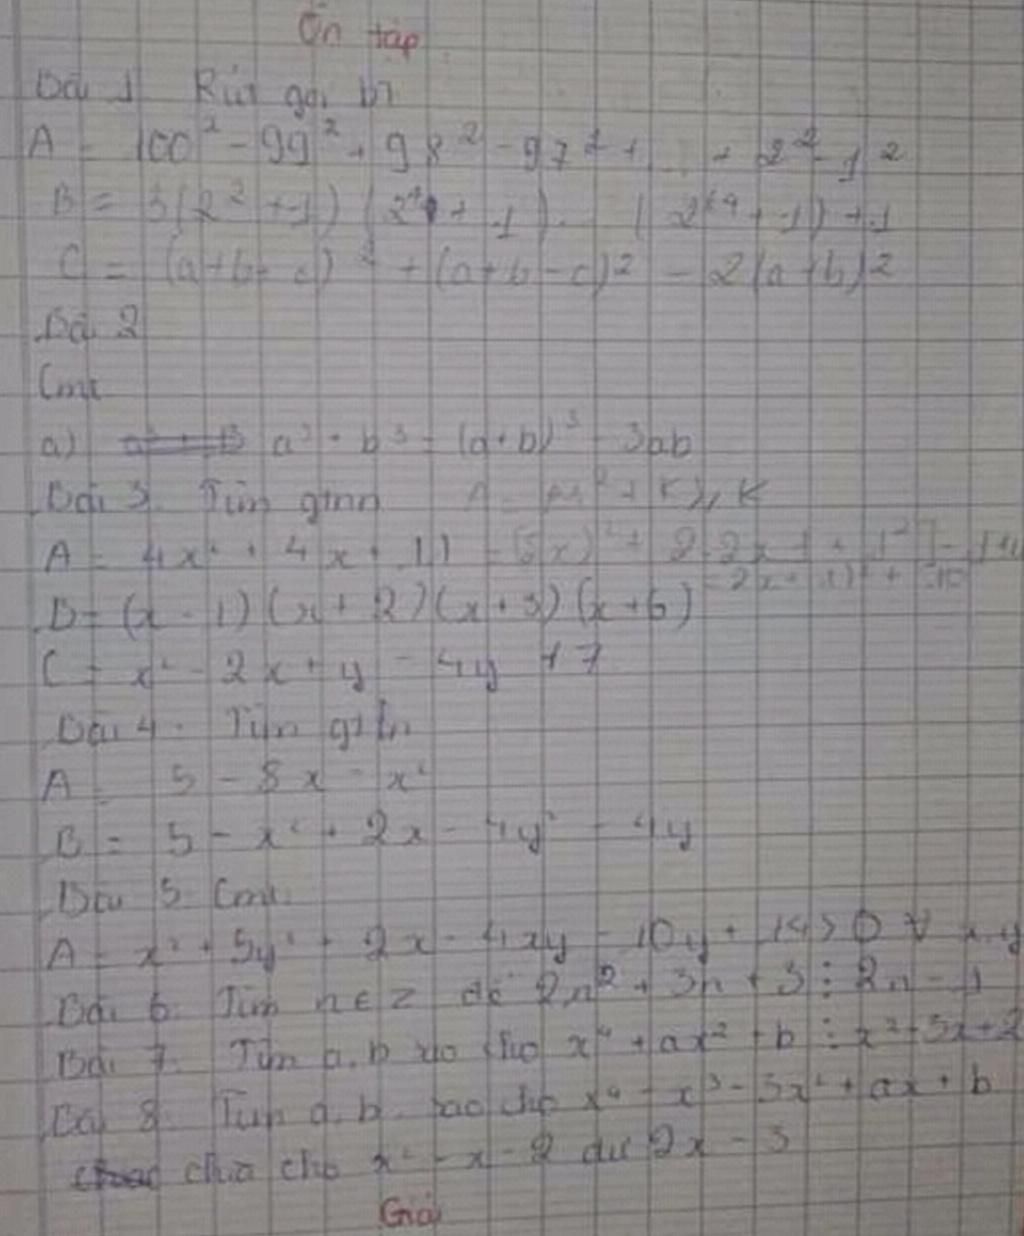 Ôn tập
Bài 1 Rút gọn bt
A = 100² - 99² + 98² - 97² + ... + 2² - 1²
B = 3(2² + 1) (2⁴ + 1) ... (2⁶⁴ + 1) + 1
C = (a + b + c)² + (a + b - c)² - 2(a + b)²
Bài 2
Cmr
a) a³ + b³ = (a + b)³ - 3ab
Bài 3. Tìm gtnn
A = 4x² + 4x + 11
B = (x - 1) (x + 2) (x + 3) (x + 6)
C = x² - 2x + y - 4y + 7
Bài 4. Tìm gtln
A = 5 - 8x - x²
B = 5 - x² + 2x - 4y² - 4y
Bài 5 Cmr
A = x² + 5y² + 2x - 4xy - 10y + 14 > 0 ∀ x, y
Bài 6. Tìm n ∈ Z để 2n² + 3n + 3 ⋮ 2n - 1
Bài 7. Tìm a, b sao cho x⁴ + ax² + b ⋮ x² - 3x + 2
Bài 8. Tìm a, b sao cho x⁴ - x³ - 3x² + ax + b
chia cho x² - x - 2 dư 2x - 3
Giải